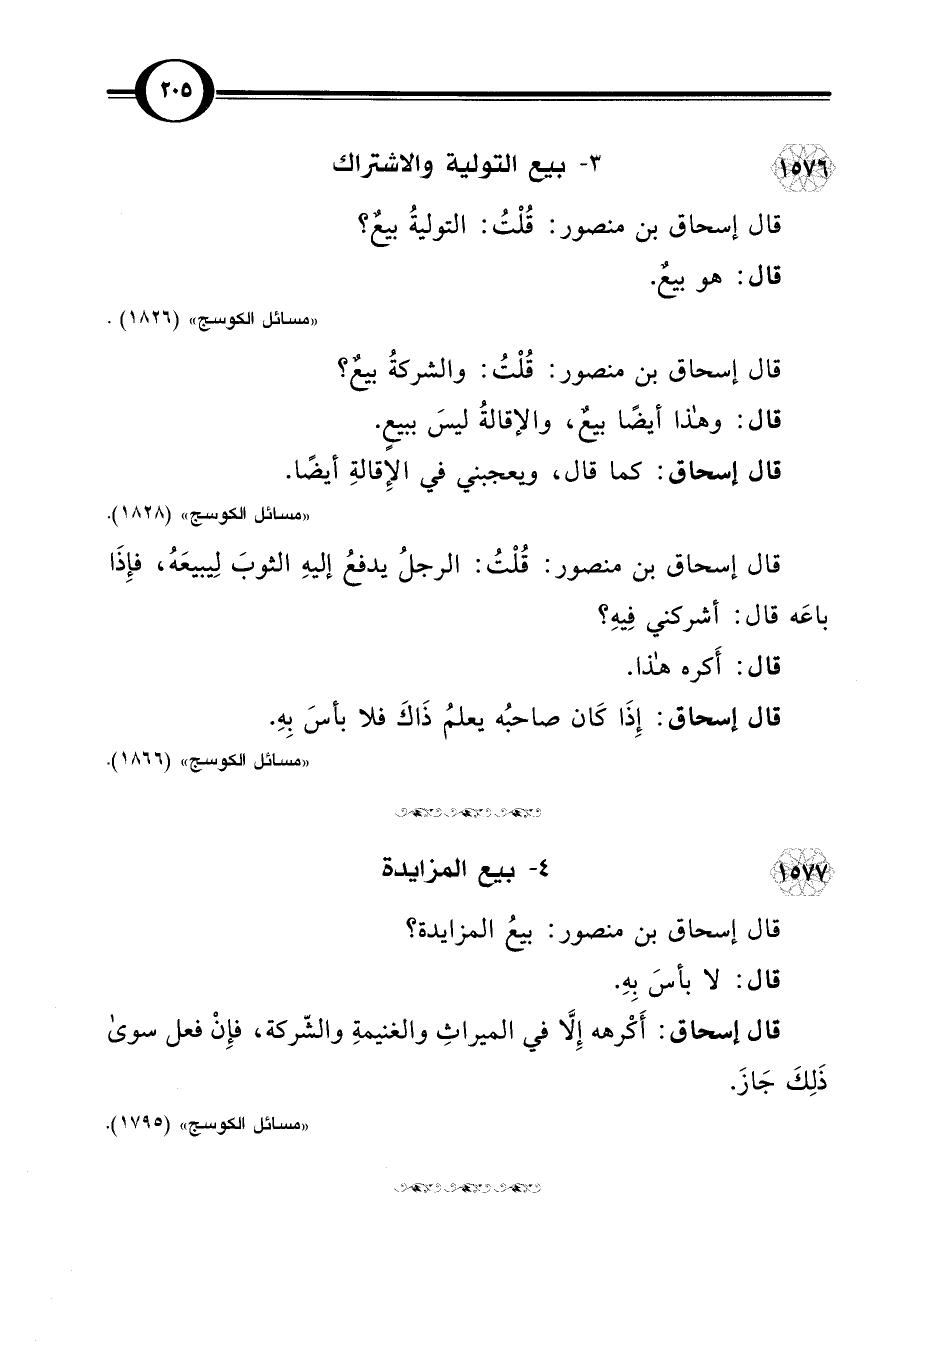 ٢٠٥
١٥٧٦
٣- بيع التولية والاشتراك
قال إسحاق بن منصور: قُلْتُ: التوليةُ بيعٌ؟
قال: هو بيعٌ.
«مسائل الكوسج» (١٨٢٦) .
قال إسحاق بن منصور: قُلْتُ: والشركةُ بيعٌ؟
قال: وهٰذا أيضًا بيعٌ، والإقالةُ ليسَ ببيعٍ.
قال إسحاق: كما قال، ويعجبني في الإِقالةِ أيضًا.
«مسائل الكوسج» (١٨٢٨).
قال إسحاق بن منصور: قُلْتُ: الرجلُ يدفعُ إليهِ الثوبَ لِيبيعَهُ، فإِذَا
باعَه قال: أشركني فِيهِ؟
قال: أَكره هٰذا.
قال إسحاق: إِذَا كَان صاحبُه يعلمُ ذَاكَ فلا بأسَ بِهِ.
«مسائل الكوسج» (١٨٦٦).
١٥٧٧
٤- بيع المزايدة
قال إسحاق بن منصور: بيعُ المزايدة؟
قال: لا بأسَ بِهِ.
قال إسحاق: أَكْرهه إِلَّا في الميراثِ والغنيمةِ والشّركة، فإِنْ فعل سوىٰ
ذَلِكَ جَازَ.
«مسائل الكوسج» (١٧٩٥).